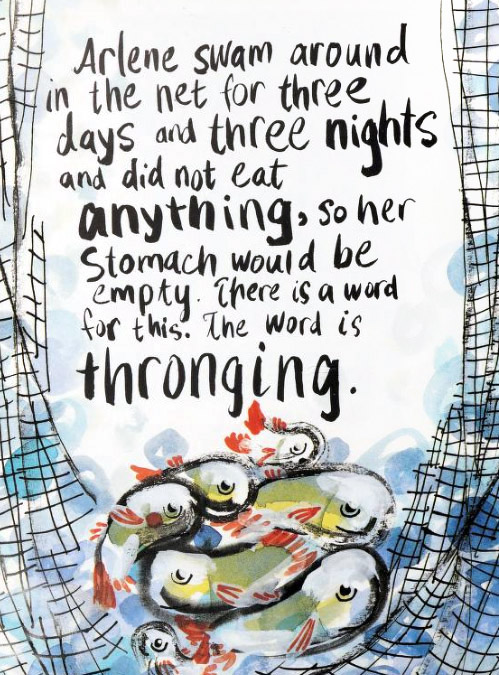 Arlene swam around
in the net for three
days and three nights
and did not eat
anything, so her
Stomach would be
empty. There is a word
for this. The word is
thronging.